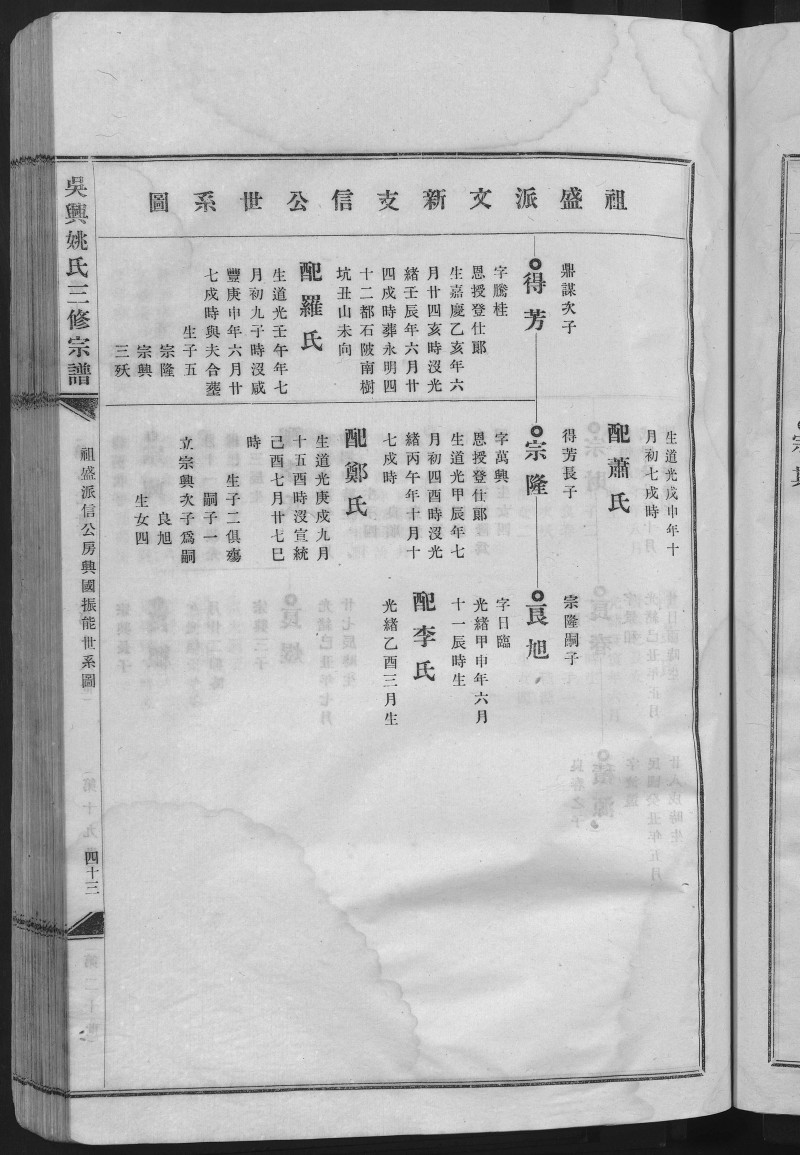 祖盛派文新支信公世系圖
鼎謀次子
得芳
字騰桂
恩授登仕郎
生嘉慶乙亥年六
月廿四亥時沒光
緒壬辰年六月廿
四戍時葬永明四
十二都石陂南樹
坑丑山未向
配羅氏
生道光壬午年七
月初九子時沒咸
豐庚申年六月廿
七戍時與夫合塟
生子五
宗隆
宗興
三殀
生道光戊申年十
月初七戍時
配蕭氏
得芳長子
宗隆
字萬興
恩授登仕郎
生道光甲辰年七
月初四酉時沒光
緒丙午年十月十
七戍時
配鄭氏
生道光庚戍九月
十五酉時沒宣統
己酉七月廿七巳
時
生子二俱殤
嗣子一
立宗興次子爲嗣
良旭
生女四
宗隆嗣子
良旭
字日臨
光緒甲申年六月
十一辰時生
配李氏
光緒乙酉三月生
吳興姚氏三修宗譜
祖盛派信公房興國振能世系圖
四十三